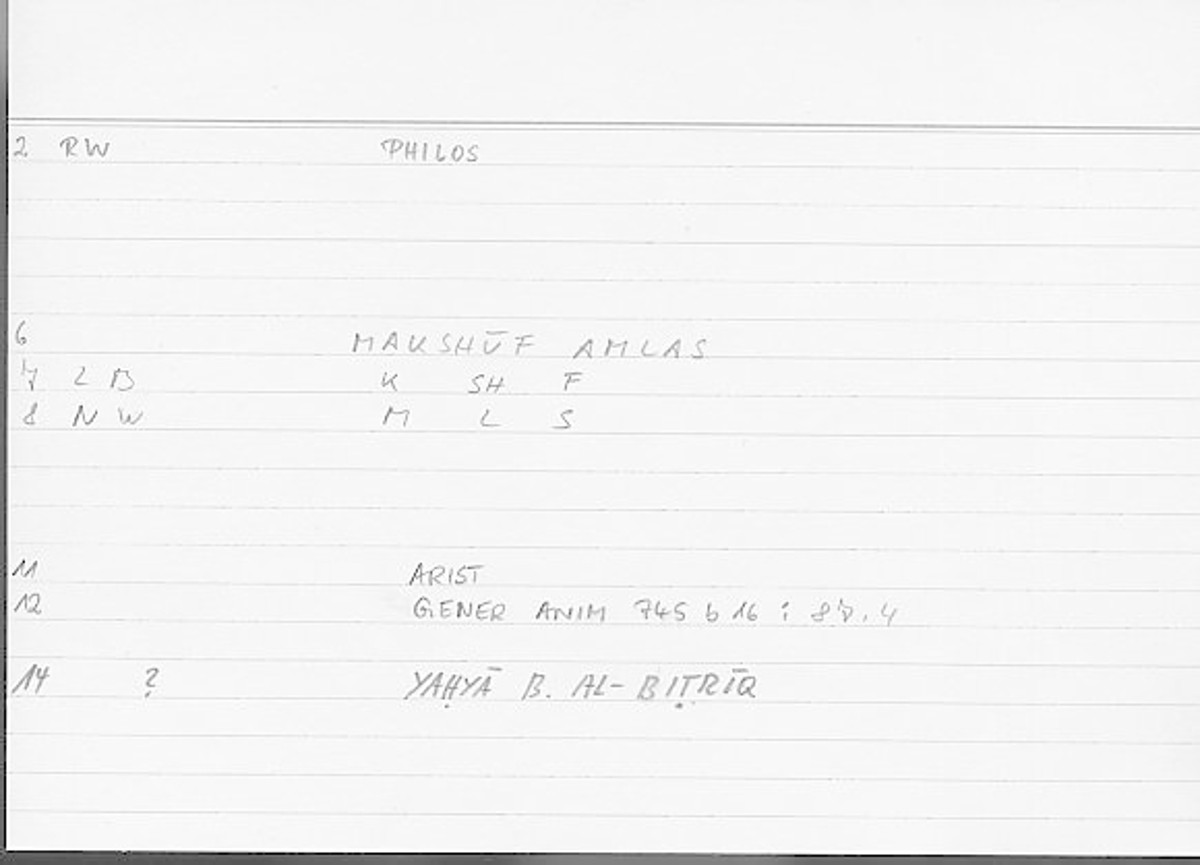 2 RW PHILOS
6 MAKSHŪF AMLAS
7 LB K SH F
8 NW M L S
11 ARIST
12 GENER ANIM 745 b 16 ; 87.4
14 ? YAḤYĀ B. AL-BIṬRĪQ